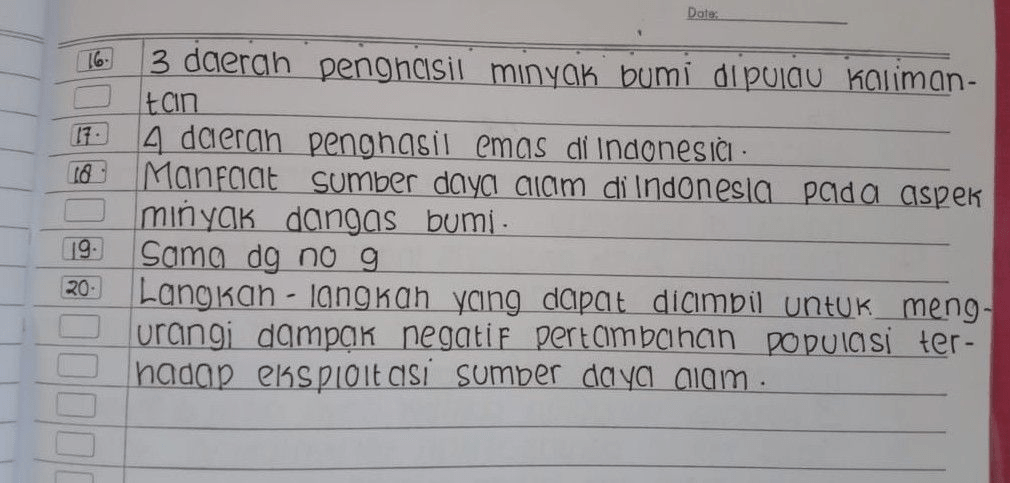 Date:
16. 3 daerah penghasil minyak bumi dipulau kaliman-
tan
17. 4 daerah penghasil emas di Indonesia.
18. Manfaat sumber daya alam di Indonesia pada aspek
minyak dangas bumi.
19. Sama dg no 9
20. Langkah - langkah yang dapat diambil untuk meng-
urangi dampak negatif pertambahan populasi ter-
hadap eksploitasi sumber daya alam.